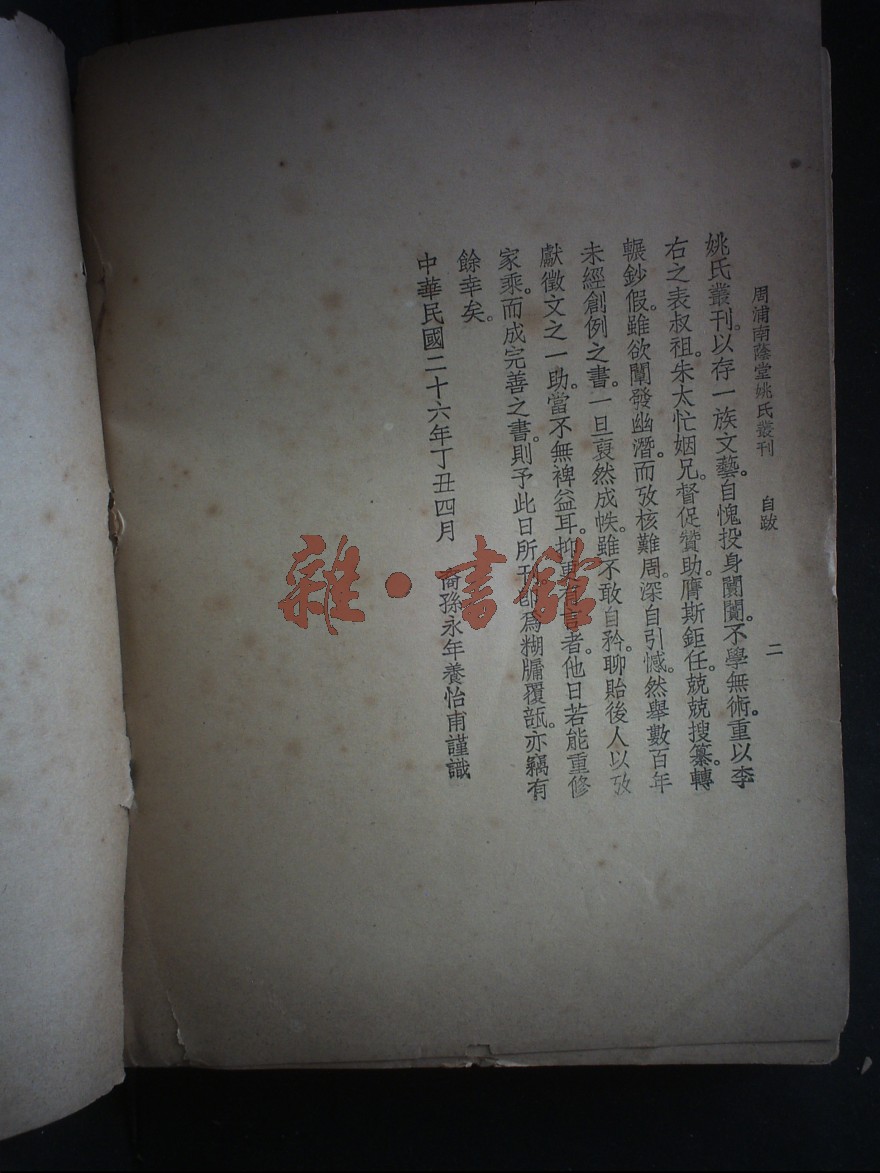 周浦南蔭堂姚氏叢刊 自跋 二
姚氏叢刊。以存一族文藝。自愧投身闤闠。不學無術。重以李
右之表叔祖。朱太忙姻兄。督促贊助。膺斯鉅任。兢兢搜纂。轉
輾鈔假。雖欲闡發幽潛。而攷核難周。深自引憾。然舉數百年
未經創例之書。一旦裒然成帙。雖不敢自矜。聊貽後人以攷
獻徵文之一助。當不無裨益耳。抑更有言者。他日若能重修
家乘。而成完善之書。則予此日所刊。卽爲糊牖覆瓿。亦竊有
餘幸矣。
中華民國二十六年丁丑四月 裔孫永年養怡甫謹識
雜·書館